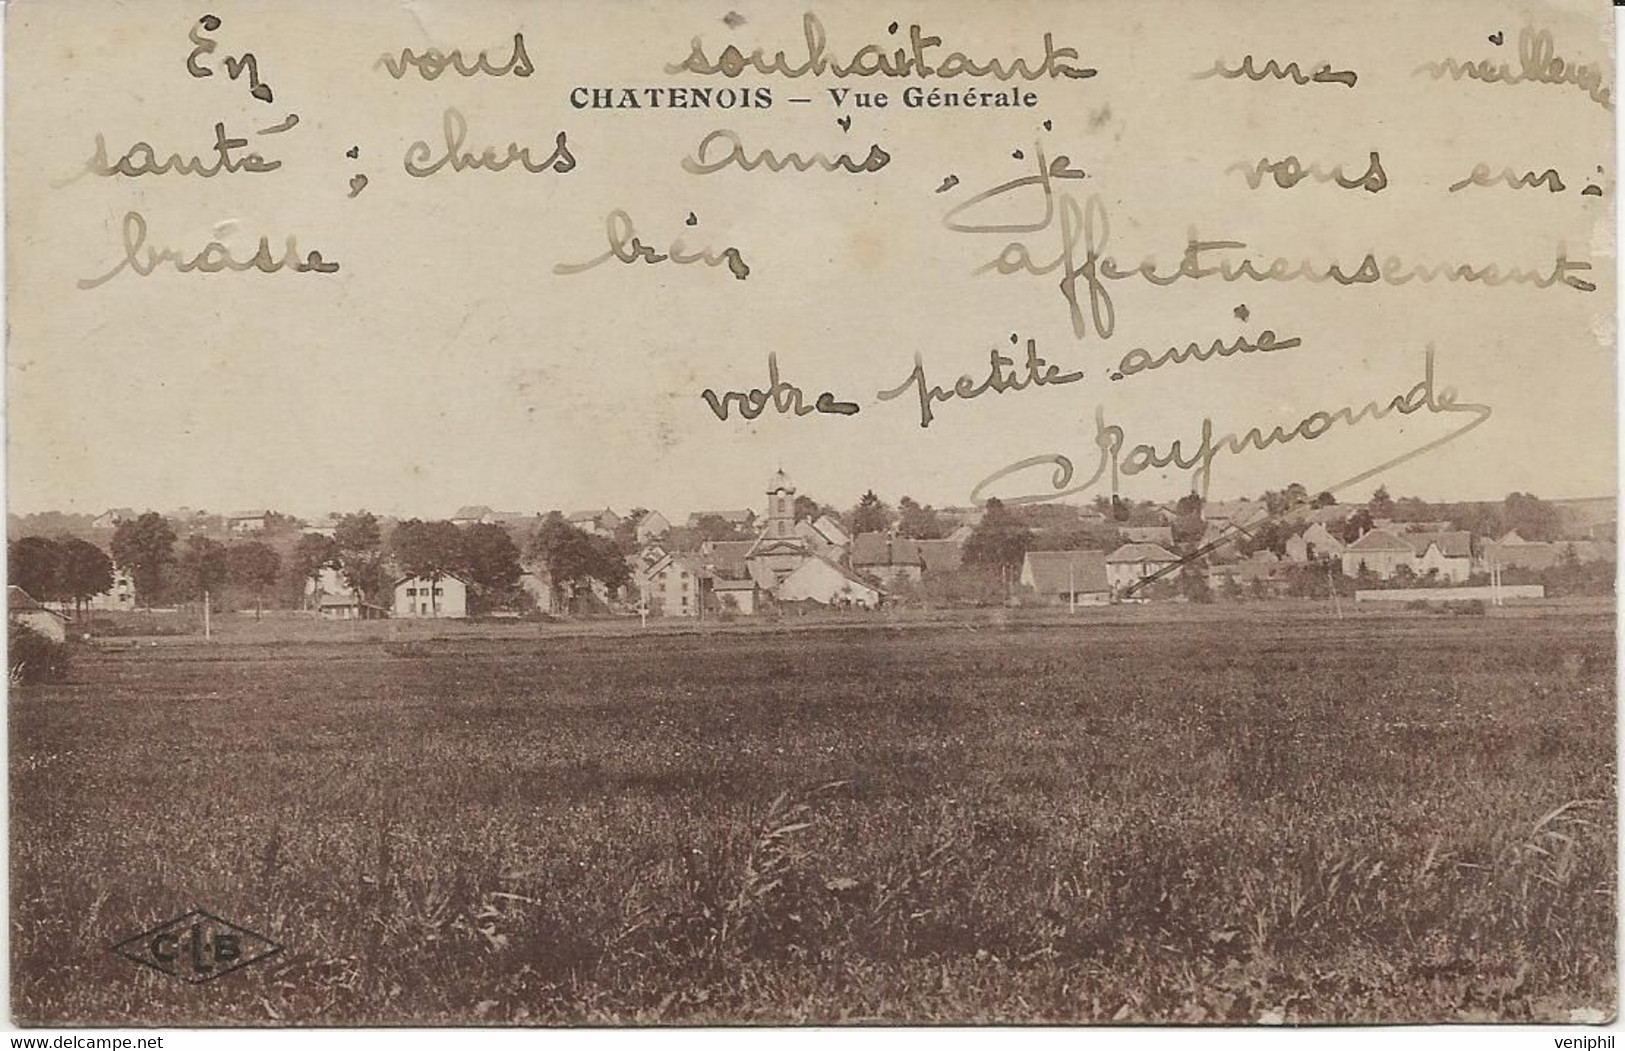 En vous souhaitant une meilleure
CHATENOIS – Vue Générale
santé ; chers amis, je vous em:
brasse bien affectueusement
votre petite amie
Raymonde
C.L.B
delcampe.net
veniphil